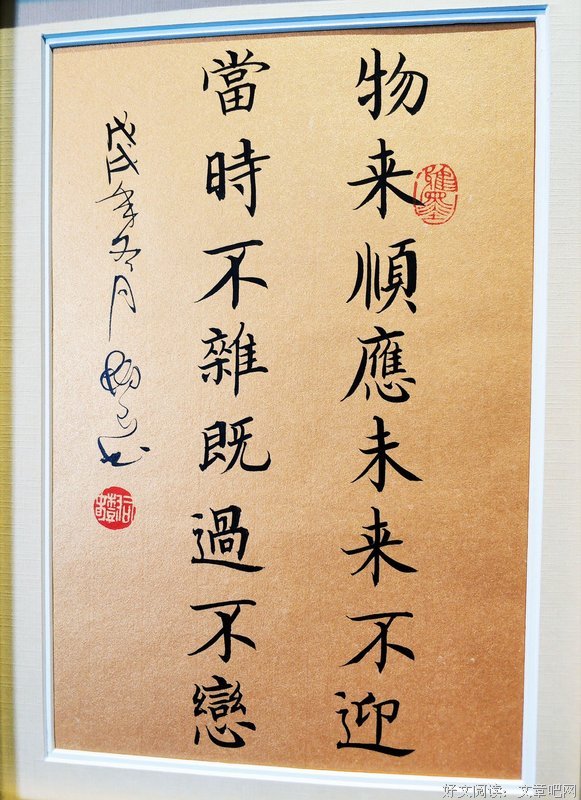 物来順應未来不迎
當時不雜既過不戀
戊戌年冬月
好文阅读：文章吧网